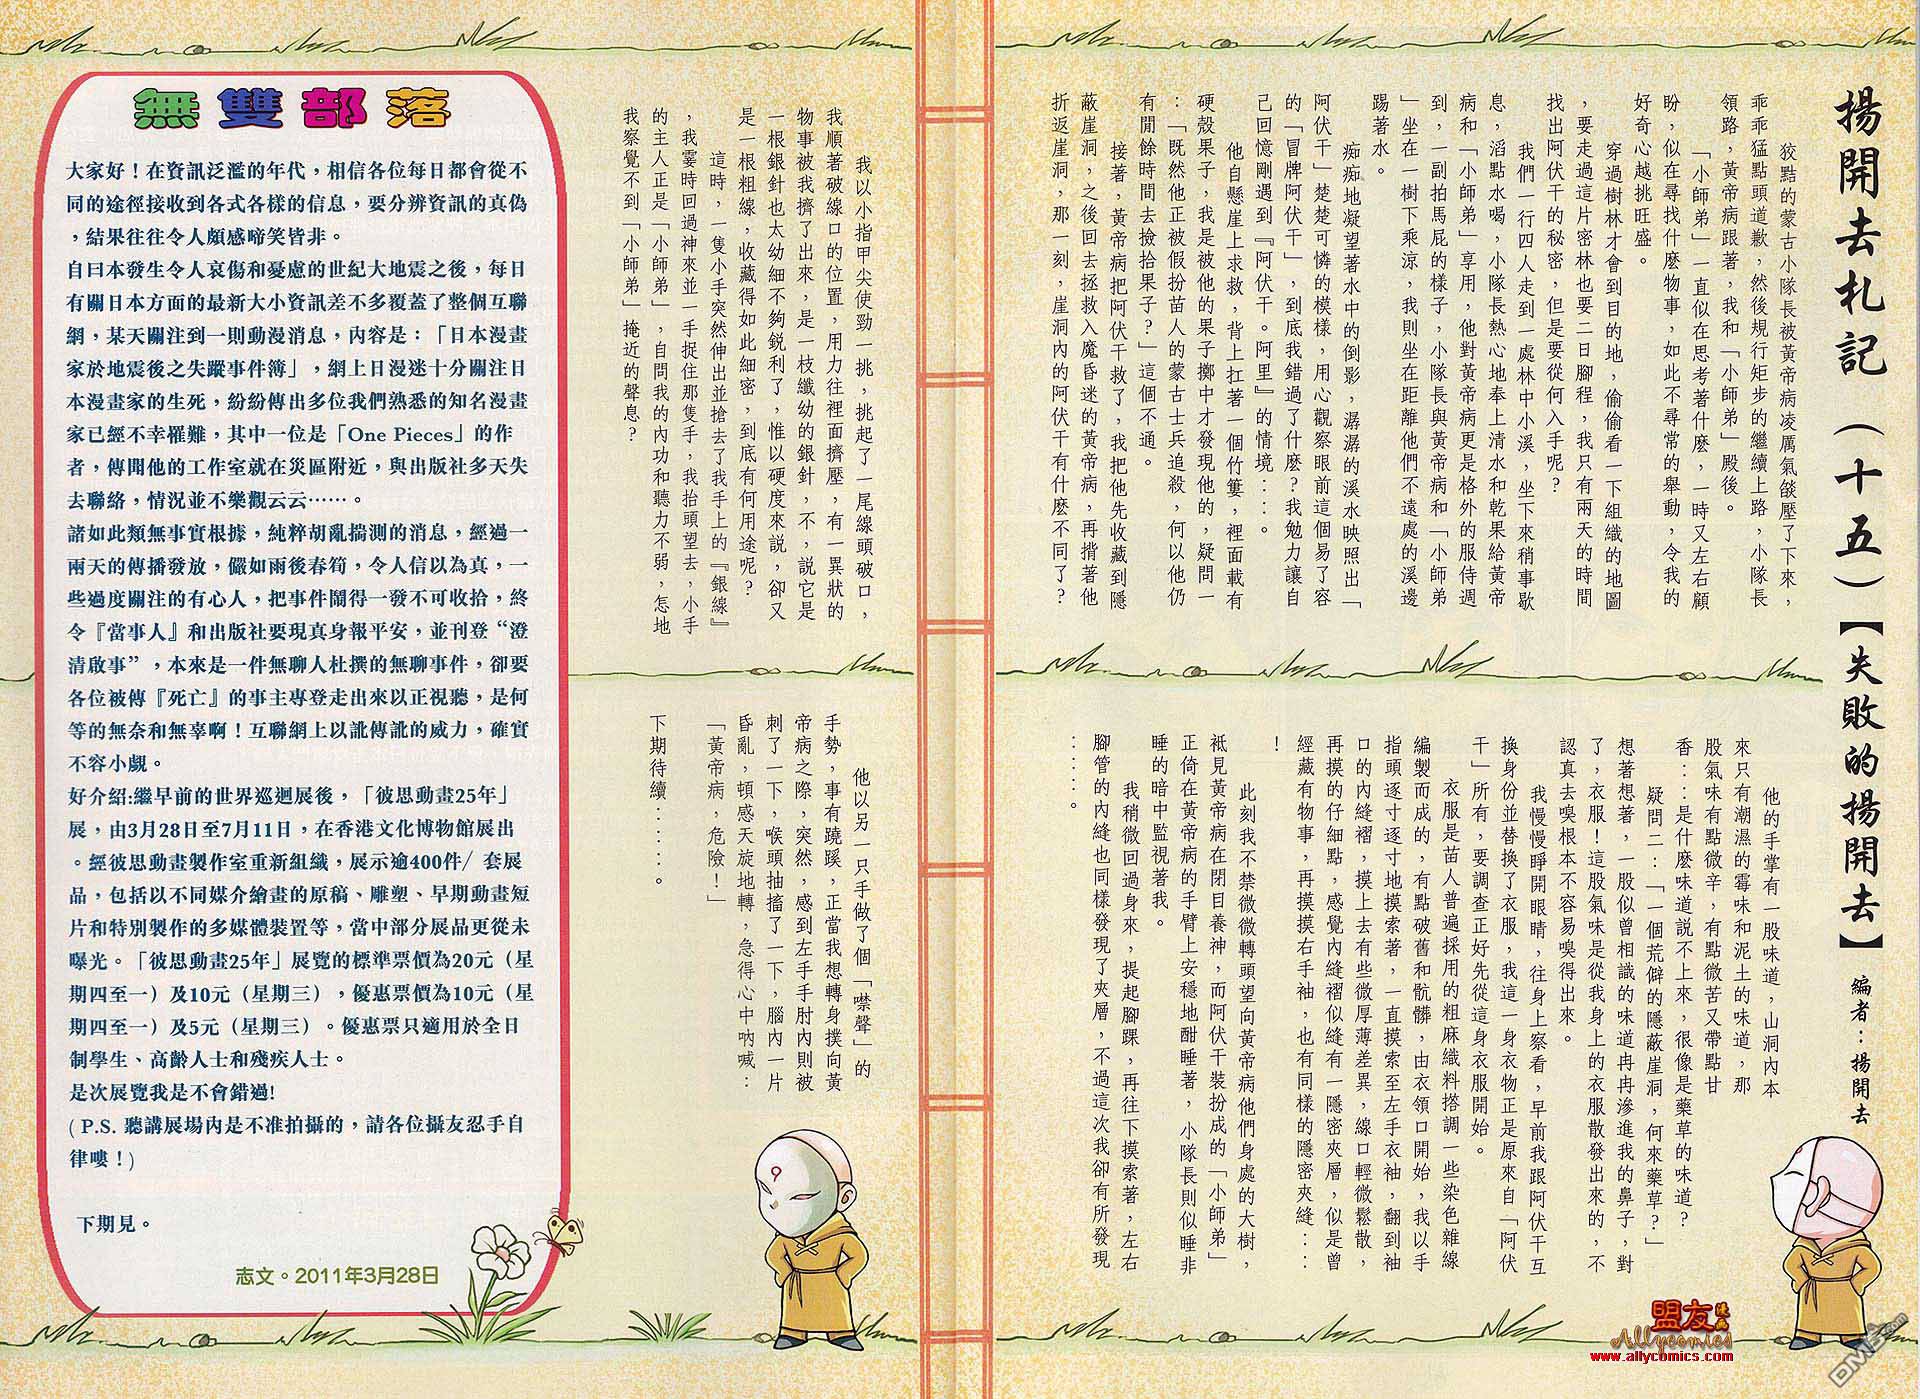 揚開去札記（十五）【失敗的揚開去】 編者：揚開去
狡黠的蒙古小隊長被黃帝病凌厲氣燄壓了下來，
乖乖猛點頭道歉，然後規行矩步的繼續上路，小隊長
領路，黃帝病跟著，我和「小師弟」殿後。
「小師弟」一直似在思考著什麼，一時又左右顧
盼，似在尋找什麼物事，如此不尋常的舉動，令我的
好奇心越挑旺盛。
穿過樹林才會到目的地，偷偷看一下組織的地圖
，要走過這片密林也要二日腳程，我只有兩天的時間
找出阿伏干的秘密，但是要從何入手呢？
我們一行四人走到一處林中小溪，坐下來稍事歇
息，滔點水喝，小隊長熱心地奉上清水和乾果給黃帝
病和「小師弟」享用，他對黃帝病更是格外的服侍週
到，一副拍馬屁的樣子，小隊長與黃帝病和「小師弟
」坐在一樹下乘涼，我則坐在距離他們不遠處的溪邊
踢著水。
痴痴地凝望著水中的倒影，潺潺的溪水映照出「
阿伏干」楚楚可憐的模樣，用心觀察眼前這個易了容
的「冒牌阿伏干」，到底我錯過了什麼？我勉力讓自
己回憶剛遇到『阿伏干。阿里』的情境：：。
他自懸崖上求救，背上扛著一個竹簍，裡面載有
硬殼果子，我是被他的果子擲中才發現他的，疑問一
：「既然他正被假扮苗人的蒙古士兵追殺，何以他仍
有閒餘時間去撿拾果子？」這個不通。
接著，黃帝病把阿伏干救了，我把他先收藏到隱
蔽崖洞，之後回去拯救入魔昏迷的黃帝病，再揹著他
折返崖洞，那一刻，崖洞內的阿伏干有什麼不同了？
他的手掌有一股味道，山洞內本
來只有潮濕的霉味和泥土的味道，那
股氣味有點微辛，有點微苦又帶點甘
香：：是什麼味道說不上來，很像是藥草的味道？
疑問二：「一個荒僻的隱蔽崖洞，何來藥草？」
想著想著，一股似曾相識的味道冉冉滲進我的鼻子，對
了，衣服！這股氣味是從我身上的衣服散發出來的，不
認真去嗅根本不容易嗅得出來。
我慢慢睜開眼睛，往身上察看，早前我跟阿伏干互
換身份並替換了衣服，我這一身衣物正是原來自「阿伏
干」所有，要調查正好先從這身衣服開始。
衣服是苗人普遍採用的粗麻織料搭調一些染色雜線
編製而成的，有點破舊和骯髒，由衣領口開始，我以手
指頭逐寸逐寸地摸索著，一直摸索至左手衣袖，翻到袖
口的內縫褶，摸上去有些微厚薄差異，線口輕微鬆散，
再摸的仔細點，感覺內縫褶似縫有一隱密夾層，似是曾
經藏有物事，再摸摸右手袖，也有同樣的隱密夾縫：：
！
此刻我不禁微微轉頭望向黃帝病他們身處的大樹，
祗見黃帝病在閉目養神，而阿伏干裝扮成的「小師弟」
正倚在黃帝病的手臂上安穩地酣睡著，小隊長則似睡非
睡的暗中監視著我。
我稍微回過身來，提起腳踝，再往下摸索著，左右
腳管的內縫也同樣發現了夾層，不過這次我卻有所發現
：：：。
我以小指甲尖使勁一挑，挑起了一尾線頭破口，
我順著破線口的位置，用力往裡面擠壓，有一異狀的
物事被我擠了出來，是一枝纖幼的銀針，不，說它是
一根銀針也太幼細不夠銳利了，惟以硬度來說，卻又
是一根粗線，收藏得如此細密，到底有何用途呢？
這時，一隻小手突然伸出並搶去了我手上的『銀線』
，我霎時回過神來並一手捉住那隻手，我抬頭望去，小手
的主人正是「小師弟」，自問我的內功和聽力不弱，怎地
我察覺不到「小師弟」掩近的聲息？
他以另一只手做了個「噤聲」的
手勢，事有蹺蹊，正當我想轉身撲向黃
帝病之際，突然，感到左手手肘內則被
刺了一下，喉頭抽搐了一下，腦內一片
昏亂，頓感天旋地轉，急得心中吶喊：
「黃帝病，危險！」
下期待續：：：。
無雙部落
大家好！在資訊泛濫的年代，相信各位每日都會從不
同的途徑接收到各式各樣的信息，要分辨資訊的真偽
，結果往往令人頗感啼笑皆非。
自日本發生令人哀傷和憂慮的世紀大地震之後，每日
有關日本方面的最新大小資訊差不多覆蓋了整個互聯
網，某天關注到一則動漫消息，內容是：「日本漫畫
家於地震後之失蹤事件簿」，網上日漫迷十分關注日
本漫畫家的生死，紛紛傳出多位我們熟悉的知名漫畫
家已經不幸罹難，其中一位是「One Pieces」的作
者，傳聞他的工作室就在災區附近，與出版社多天失
去聯絡，情況並不樂觀云云……。
諸如此類無事實根據，純粹胡亂揣測的消息，經過一
兩天的傳播發放，儼如雨後春筍，令人信以為真，一
些過度關注的有心人，把事件鬧得一發不可收拾，終
令『當事人』和出版社要現真身報平安，並刊登“澄
清啟事”，本來是一件無聊人杜撰的無聊事件，卻要
各位被傳『死亡』的事主專登走出來以正視聽，是何
等的無奈和無辜啊！互聯網上以訛傳訛的威力，確實
不容小覷。
好介紹:繼早前的世界巡迴展後，「彼思動畫25年」
展，由3月28日至7月11日，在香港文化博物館展出
。經彼思動畫製作室重新組織，展示逾400件/ 套展
品，包括以不同媒介繪畫的原稿、雕塑、早期動畫短
片和特別製作的多媒體裝置等，當中部分展品更從未
曝光。「彼思動畫25年」展覽的標準票價為20元（星
期四至一）及10元（星期三），優惠票價為10元（星
期四至一）及5元（星期三）。優惠票只適用於全日
制學生、高齡人士和殘疾人士。
是次展覽我是不會錯過!
( P.S. 聽講展場內是不准拍攝的，請各位攝友忍手自
律嘍！)
下期見。
志文。2011年3月28日
盟友漫画
Allycomics
www.allycomics.com